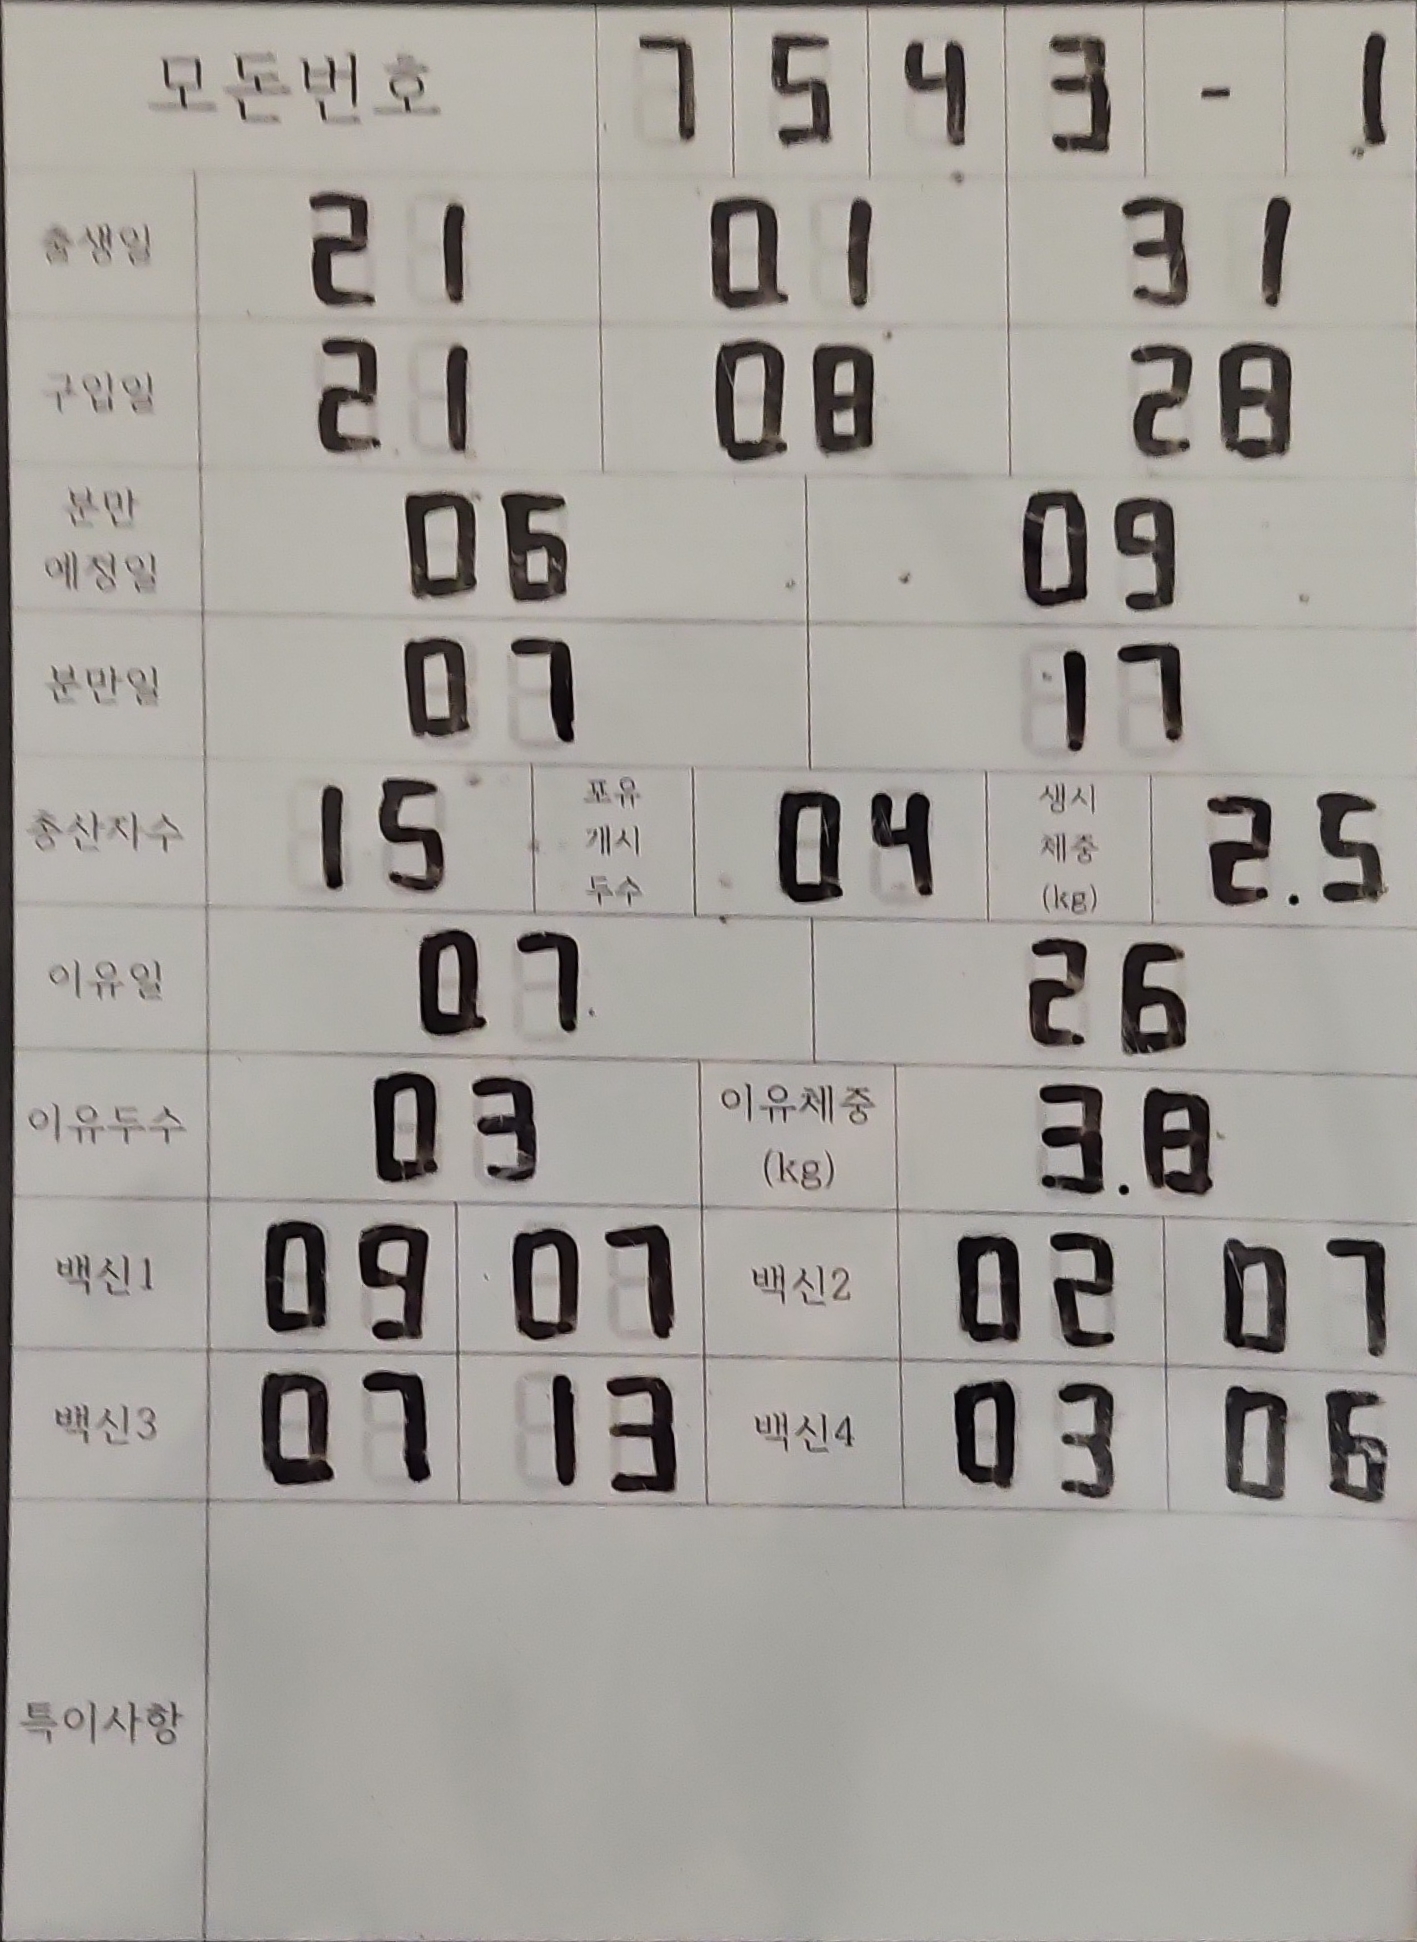 모돈번호 7 5 4 3 - 1
출생일 21 01 31
구입일 21 08 28
분만
예정일 06 09
분만일 07 17
총산자수 15 포유 개시 두수 04 생시 체중 (kg) 2.5
이유일 07 26
이유두수 03 이유체중 (kg) 3.8
백신1 09 07 백신2 02 07
백신3 07 13 백신4 03 06
특이사항